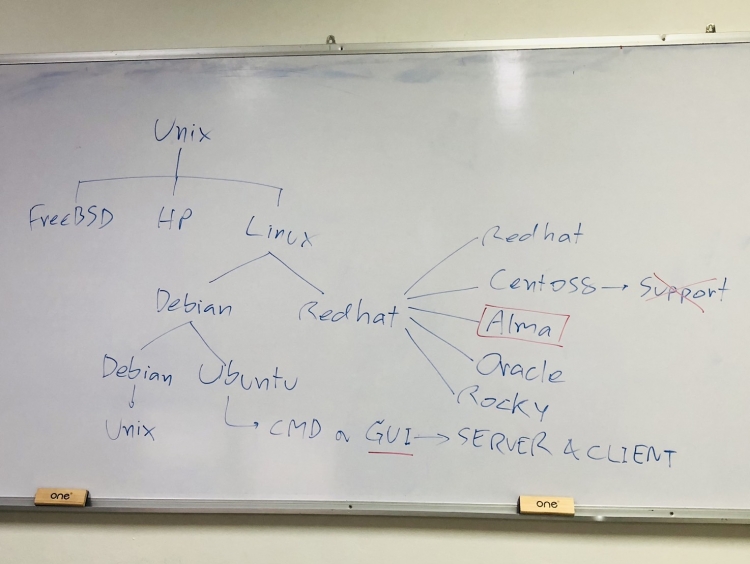 Unix
FreeBSD HP Linux
Redhat
Centos8 → Support
Debian Redhat
Alma
Debian Ubuntu
Oracle
Rocky
Unix
CMD or GUI → SERVER & CLIENT
one
one